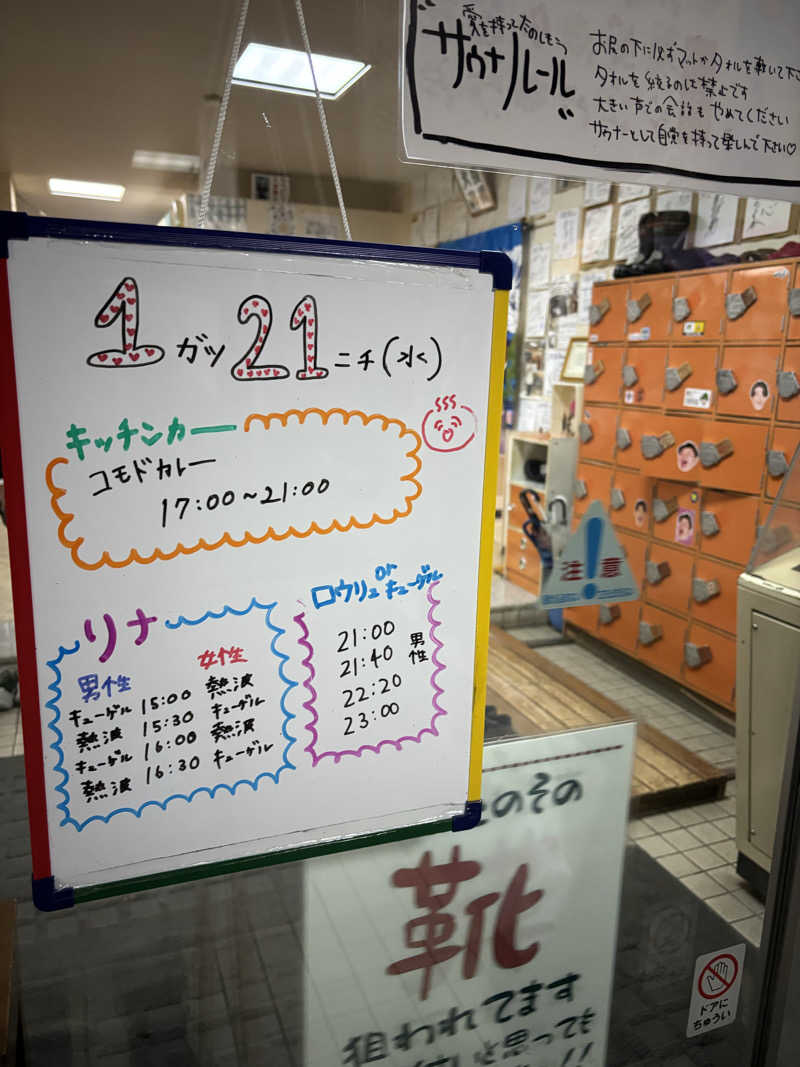 愛を持ってたのしもう
サウナルール
お尻の下に必ずマットかタオルを敷いて下さ
タオルを絞るのも禁止です
大きい声での会話もやめてください
サウナーとして自覚を持って楽しんで下さい♡
1ガツ21ニチ(水)
キッチンカー
コモドカレー
17:00~21:00
リナ
男性 女性
キューゲル 15:00 熱波
熱波 15:30 キューゲル
キューゲル 16:00 熱波
熱波 16:30 キューゲル
ロウリュ or キューゲル
21:00
21:40
22:20
23:00
男性
注意
のその
靴
狙われてます
と思っても
ドアに
ちゅうい